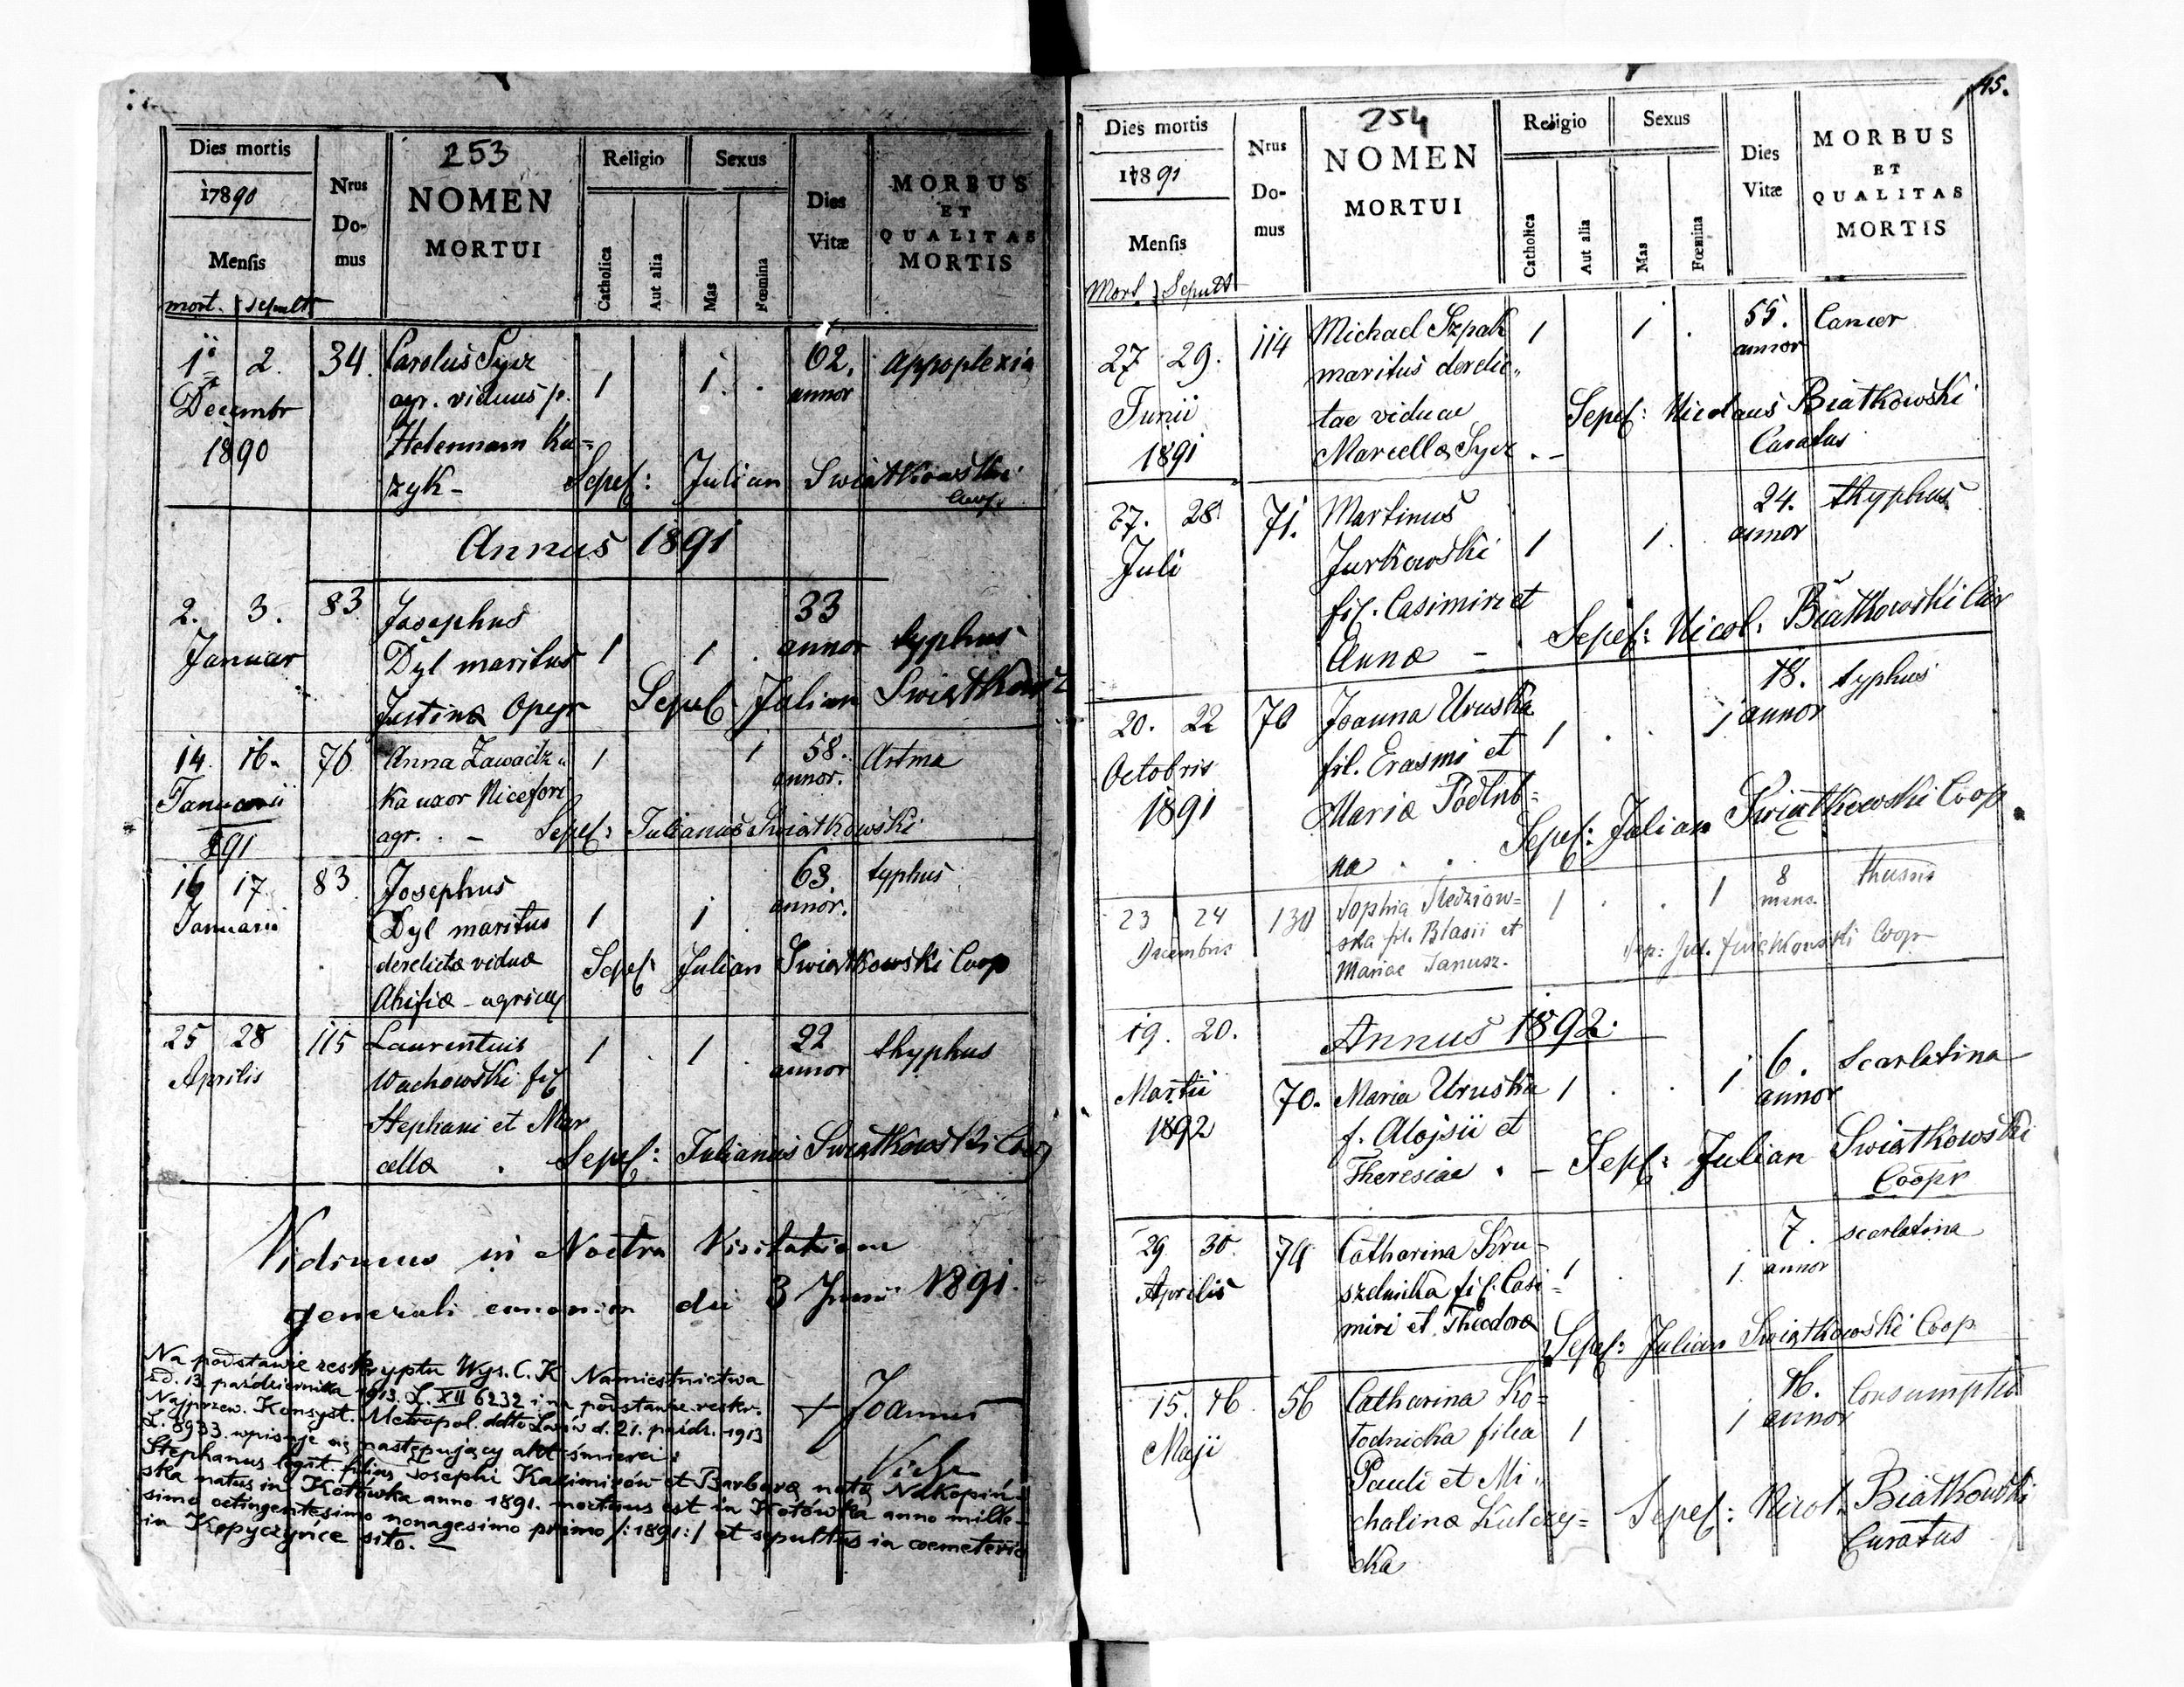 Dies mortis
17890
Mensis
mort. sepult
Nrus Do- mus
253
NOMEN
MORTUI
Religio
Catholica
Aut alia
Sexus
Mas
Fœmina
Dies
Vitæ
MORBUS
ET
QUALITAS
MORTIS
1 2. 34. Carolus Sysz 1 1. 62. appoplexia
Decembr agr. viduus p. annor
1890 Helennam Ku=
zyk - Sepel: Julian Swiatkowski
Coop.
Annus 1891
2. 3. 83 Josephus 33
Januar Dyl maritus 1 1. annor typhus
Justinæ Opyr Sepel Julian
14. 16. 76 Anna Zawadz= 1 1 58. Astma
Januarii ka uxor Nicefori annor.
891 agr. - Sepel: Julianus Swiatkowski
16 17. 83 Josephus 63. typhus
Januarii Dyl maritus 1 1 annor.
derelictæ viduæ Sepel Julian Swiatkowski Coop
25 28 115 Laurentius 1 1. 22 thyphus
Aprilis Wachowski fil annor
Stephani et Mar
cellæ . Sepel: Julianus Swiatkowski Coop
Vidimus in Nostra Visitatione
generali canonica die 3 Junii 1891.
+ Joannes
Na podstawie reskryptu Wys. C. K. Namiestnictwa
z d. 13 października 1913. L. XII 6232 i na podstawie reskr.
Najprzew. Konsyst. Metropol. ddto Lwów d. 21. paźdz. 1913
L. 8933. wpisuje się następujący akt śmierci:
Stephanus legit. filius Josephi Kazimirów et Barbaræ natæ Nakopiń-
ska natus in Kotówka anno 1891. mortuus est in Kotówka anno mille-
simo octingentesimo nonagesimo primo /:1891:/ et sepultus in coemeterio
in Kopyczyńce sito. -
145.
Dies mortis
17891
Mensis
Mort. Sepult
Nrus Do- mus
254
NOMEN
MORTUI
Religio
Catholica
Aut alia
Sexus
Mas
Fœmina
Dies
Vitæ
MORBUS
ET
QUALITAS
MORTIS
27 29. 114 Michael Szpak 1 1 . 55. Cancer
Junii maritus derelic„ annor
1891 tae viduae Sepel: Nicolaus Białkowski
Marcellæ Sysz . - Curatus
27. 28. 71. Martinus 24. thyphus
Juli Jurkowski 1 1. annor
fil. Casimiri et
Annæ - . Sepel: Nicol. Białkowski Cur
20. 22 70 Joanna Uruska 18. typhus
Octobris fil. Erasmi et 1 . . 1 annor
1891 Mariæ Podlub=
na . . Sepel: Julian Swiątkowski Coop
23 24 Sophia Śledziow= 1 . . 1 8
Decembris ska fil. Blasii et mens.
Mariae Janusz. Sep: Jul. Swiatkowski Coop
19. 20. Annus 1892.
Martii 70. Maria Uruska 1 . . 1 6. Scarlatina
1892 f. Alojsii et annor
Theresiae . - Sepl: Julian Swiatkowski
Coopr
29 30. 74 Catharina Kru- 7. scarlatina
Aprilis szelnicka fil. Casi= 1 . 1. annor
miri et Theodoræ
Sepel: Julian Swiątkowski Coop
15. 16 56 Catharina Ko= 16. Consumptio
Maji łodnicka filia 1 1 annor
Pauli et Mi„
chalinæ Kulczy= Sepel: Nicol. Białkowski
cka Curatus